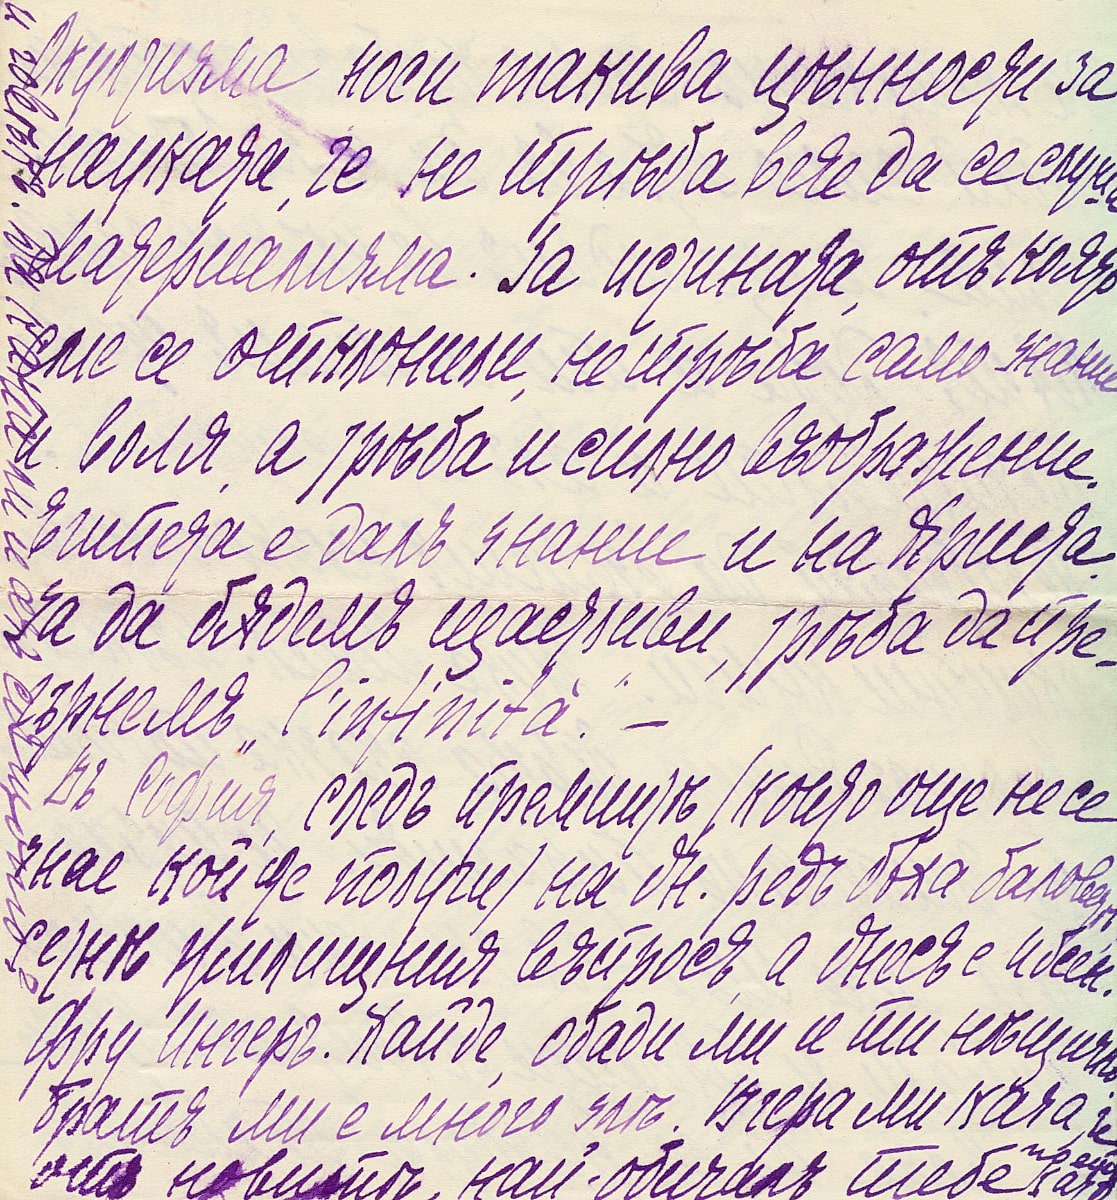 Окултизма носи такива цѣнности за
науката, че не трѣба вече да се случи
материализма. За истината, отъ която
сме се отклонили, не трѣба само знание
и воля, а трѣба и силно въображение.
Египетъ е далъ знание и на Христа.
За да бѫдемъ щастливи, трѣба да пре-
гърнемъ „l'infinità". —
Въ София, следъ премиитѣ (които още не се
знае кой ще получи) на дн. редъ бѣха
жилищния въпросъ, а днесъ е Ибсен.
Фру Ингеръ. Хайде, обади ми и ти нѣщичко
братъ ми е много злѣ. Вчера ми каза, че
отъ новитѣ, най-обичалъ тебе